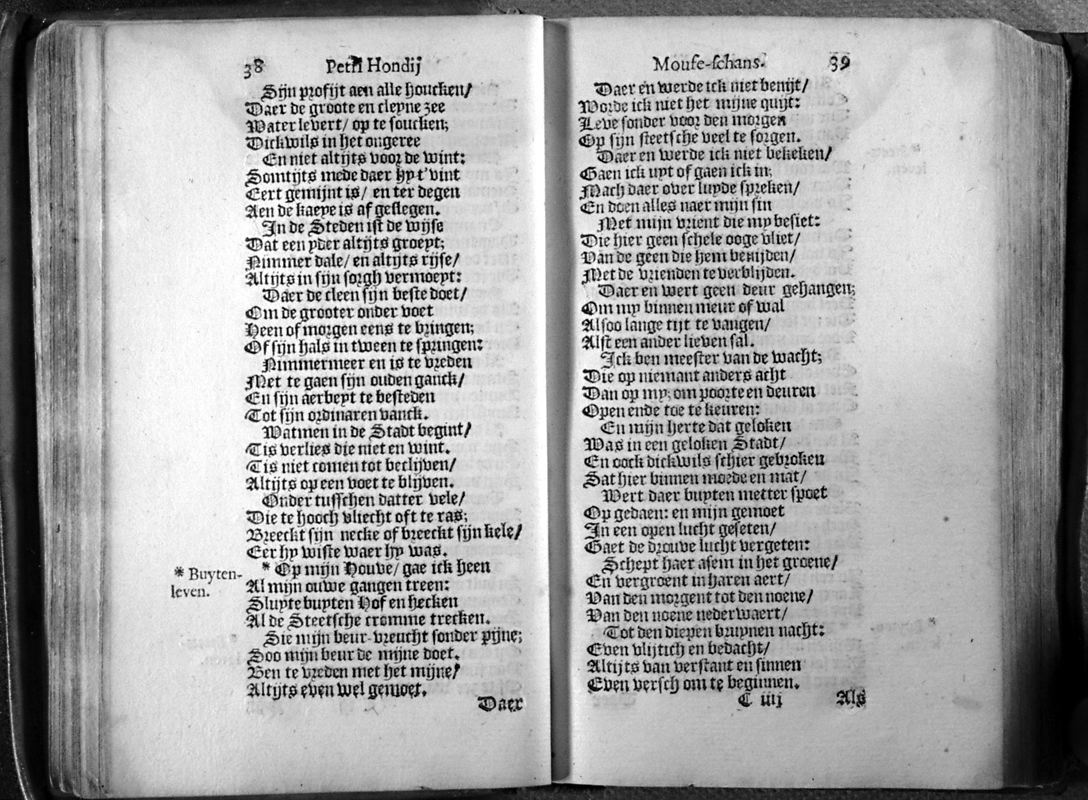 38 Petri Hondij
Sijn profijt aen alle houcken/
Daer de groote en cleyne zee
Water levert/ op te soucken;
Dickwils in het ongeree
En niet altijts voor de wint:
Somtijts mede daer hy t' vint
Eert gemijnt is/ en ter degen
Aen de kaeye is af geslegen.
In de Steden ist de wijse
Dat een yder altijts groeyt;
Nimmer dale/ en altijts rijse/
Altijts in sijn sorgh vermoeyt:
Daer de cleen sijn beste doet/
Om de grooter onder voet
Heen of morgen eens te bringen;
Of sijn hals in tween te springen:
Nimmermeer en is te vreden
Met te gaen sijn ouden ganck/
En sijn aerbeyt te besteden
Tot sijn ordinaren vanck.
Watmen in de Stadt begint/
Tis verlies die niet en wint.
Tis niet comen tot beclijven/
Altijts op een voet te blijven.
Onder tusschen datter vele/
Die te hooch vliecht oft te ras;
Breeckt sijn necke of breeckt sijn kele/
Eer hy wiste waer hy was.
* Op mijn Houve/ gae ick heen
* Buyten-
leven.
Al mijn ouwe gangen treen:
Sluyte buyten Hof en hecken
Al de Steetsche cromme trecken.
Sie mijn beur-vreucht sonder pijne;
Soo mijn beur de mijne doet.
Ben te vreden met het mijne/
Altijts even wel gemoet.
Daer
Mouse-schans. 39
Daer en werde ick niet benijt/
Worde ick niet het mijne quijt:
Leve sonder voor den morgen
Op sijn steetsche veel te sorgen.
Daer en werde ick niet bekeken/
Gaen ick uyt of gaen ick in;
Mach daer over luyde spreken/
En doen alles naer mijn sin
Met mijn vrient die my besiet:
Die hier geen schele ooge vliet/
Van de geen die hem benijden/
Met de vrienden te verblijden.
Daer en wert geen deur gehangen;
Om my binnen meur of wal
Alsoo lange tijt te vangen/
Alst een ander lieven sal.
Ick ben meester van de wacht;
Die op niemant anders acht
Dan op my; om poorte en deuren
Open ende toe te keuren:
En mijn herte dat geloken
Was in een geloken Stadt/
En oock dickwils schier gebroken
Sat hier binnen moede en mat/
Wert daer buyten metter spoet
Op gedaen: en mijn gemoet
In een open lucht geseten/
Gaet de drouve lucht vergeten:
Schept haer asem in het groene/
En vergroent in haren aert/
Van den morgent tot den noene/
Van den noene nederwaert/
Tot den diepen bruynen nacht:
Even vlijtich en bedacht/
Altijts van verstant en sinnen
Even versch om te beginnen.
C iiij Als